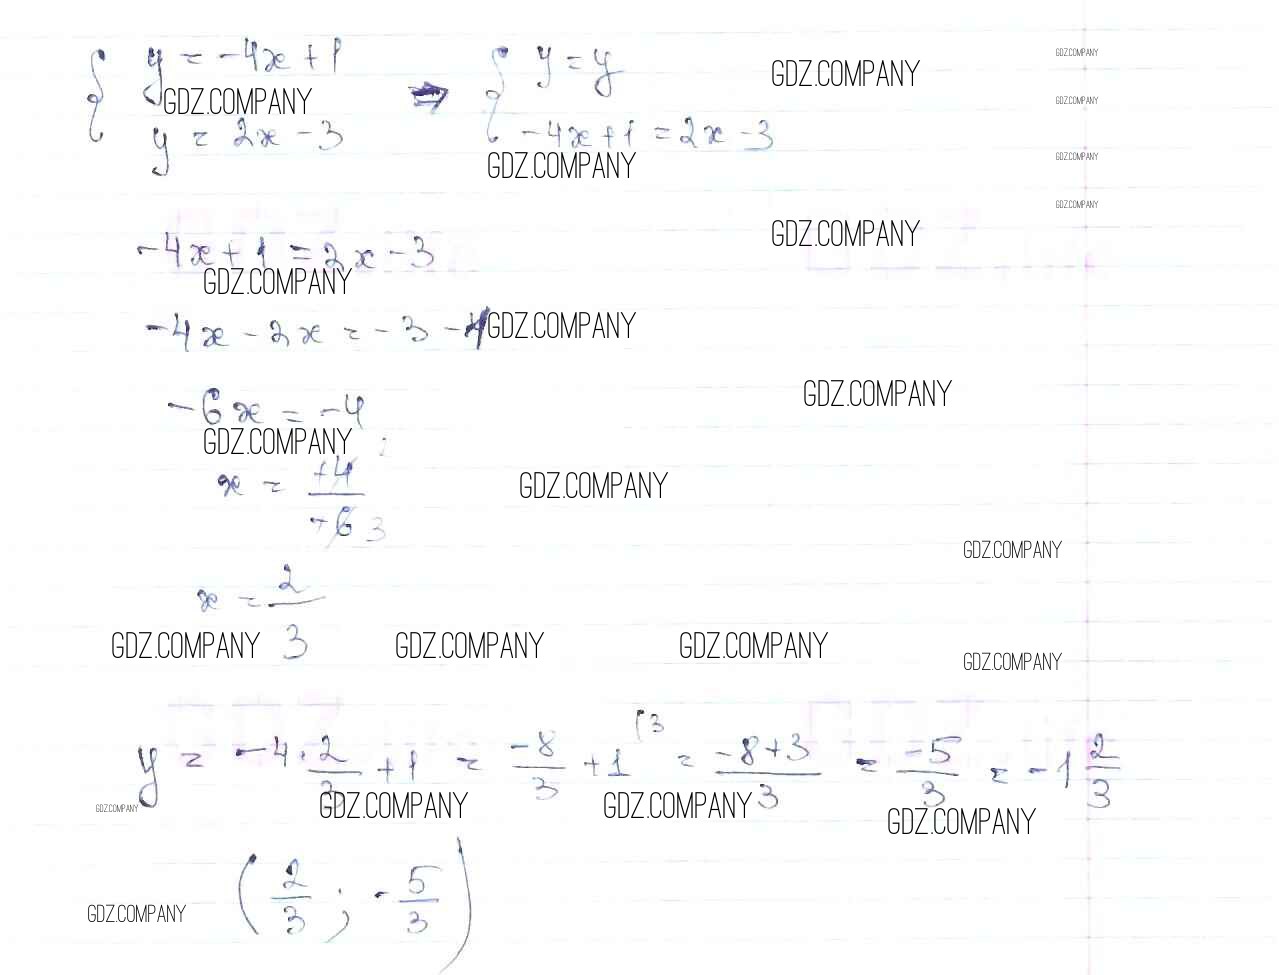 { y = -4x + 1 ⇒ { y = y GDZ.COMPANY GDZ.COMPANY
GDZ.COMPANY GDZ.COMPANY
y = 2x - 3 -4x + 1 = 2x - 3
GDZ.COMPANY GDZ.COMPANY
GDZ.COMPANY
-4x + 1 = 2x - 3 GDZ.COMPANY
GDZ.COMPANY
-4x - 2x = -3 - 1 GDZ.COMPANY
-6x = -4 GDZ.COMPANY
GDZ.COMPANY
x = +4/+6 2 3 GDZ.COMPANY
GDZ.COMPANY
x = 2/3
GDZ.COMPANY GDZ.COMPANY GDZ.COMPANY GDZ.COMPANY
y = -4 · 2/3 + 1 = -8/3 + 1 (3 = -8+3/3 = -5/3 = -1 2/3
GDZ.COMPANY GDZ.COMPANY GDZ.COMPANY GDZ.COMPANY
(2/3 ; -5/3)
GDZ.COMPANY